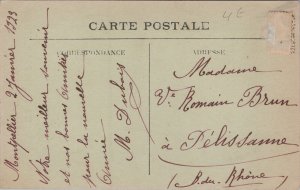 CARTE POSTALE
4E
CORRESPONDANCE
ADRESSE
Montpellier 2 Janvier 1923
Notre meilleur souvenir
et nos bonnes amitiés
pour la nouvelle
année
M. Dubois
Madame
Vve Romain Brun
à Pélissanne
(B. du Rhône)